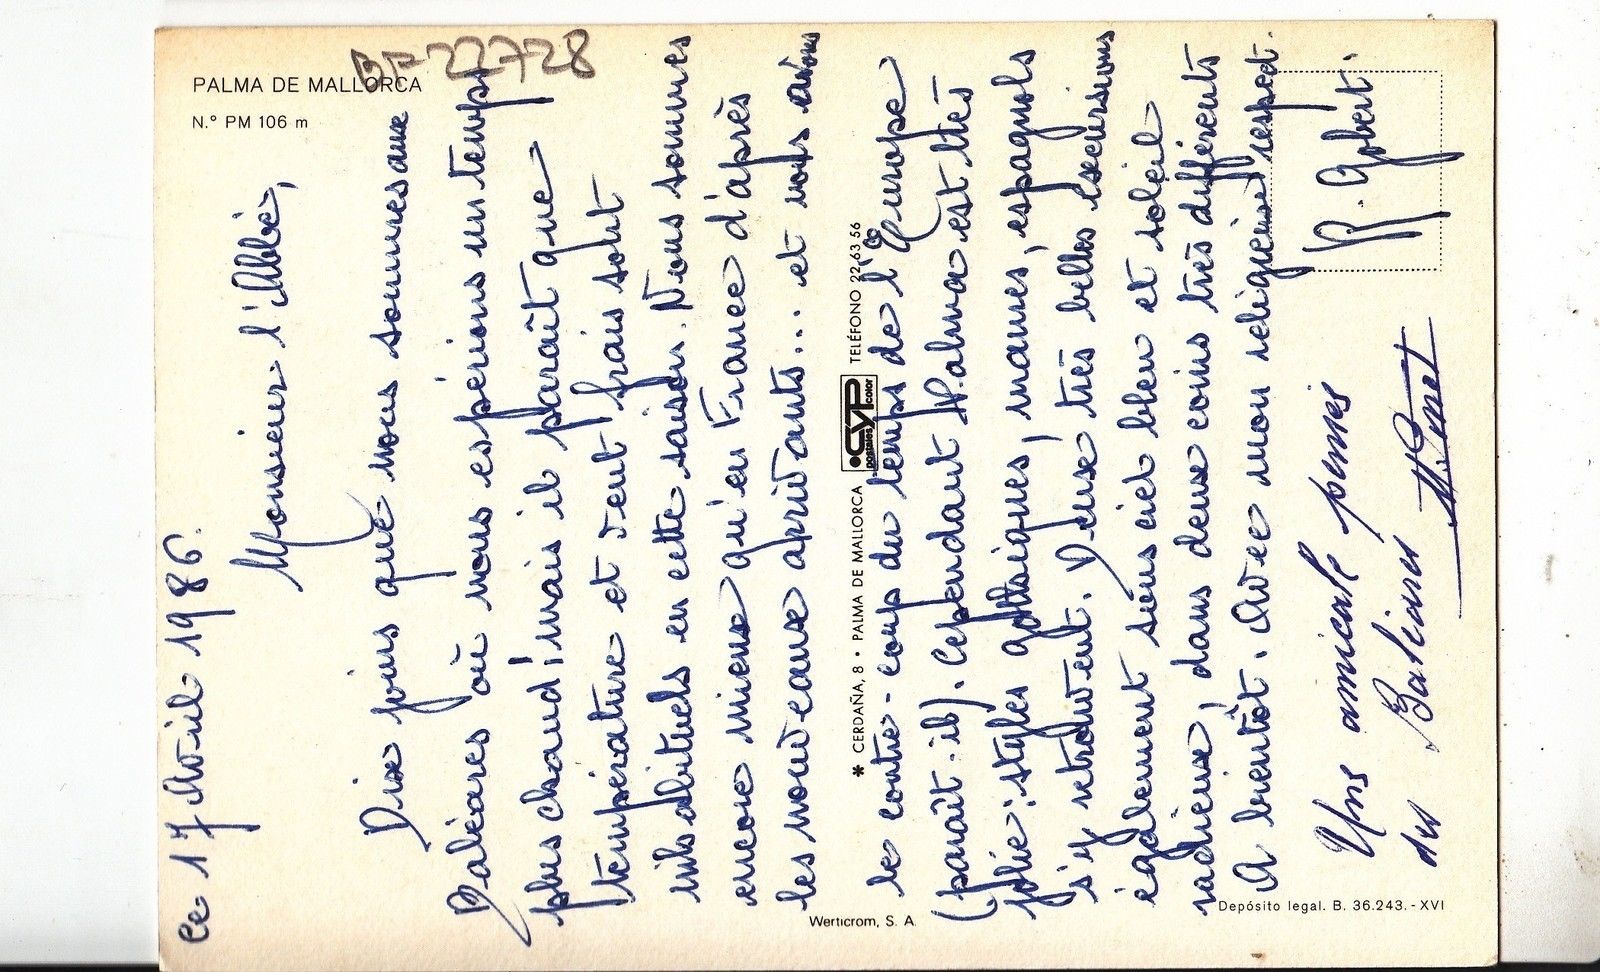 BF 22728
PALMA DE MALLORCA
N.° PM 106 m
ce 17 Avril 1986.
Monsieur l'Abbé,
Dix jours que nous sommes aux
Baléares où nous espérions un temps
plus chaud, mais il paraît que
température et vent frais sont
inhabituels en cette saison. Nous sommes
encore mieux qu'en France d'après
les nouveaux arrivants... et nous avions
le contre-coup du temps de l'Europe
(paraît-il). Cependant Palma est très
jolie: styles gothiques, maures, espagnols
s'y retrouvent. Deux très belles excursions
également sous ciel bleu et soleil
radieux, dans deux coins très différents
A bientôt. Avec mon religieux respect.
R. Gobert.
Une amicale pensée
des Baléares
* CERDAÑA, 8 • PALMA DE MALLORCA
CYP
postales color
TELÉFONO 22 63 56
Werticrom, S. A.
Depósito legal. B. 36.243. - XVI